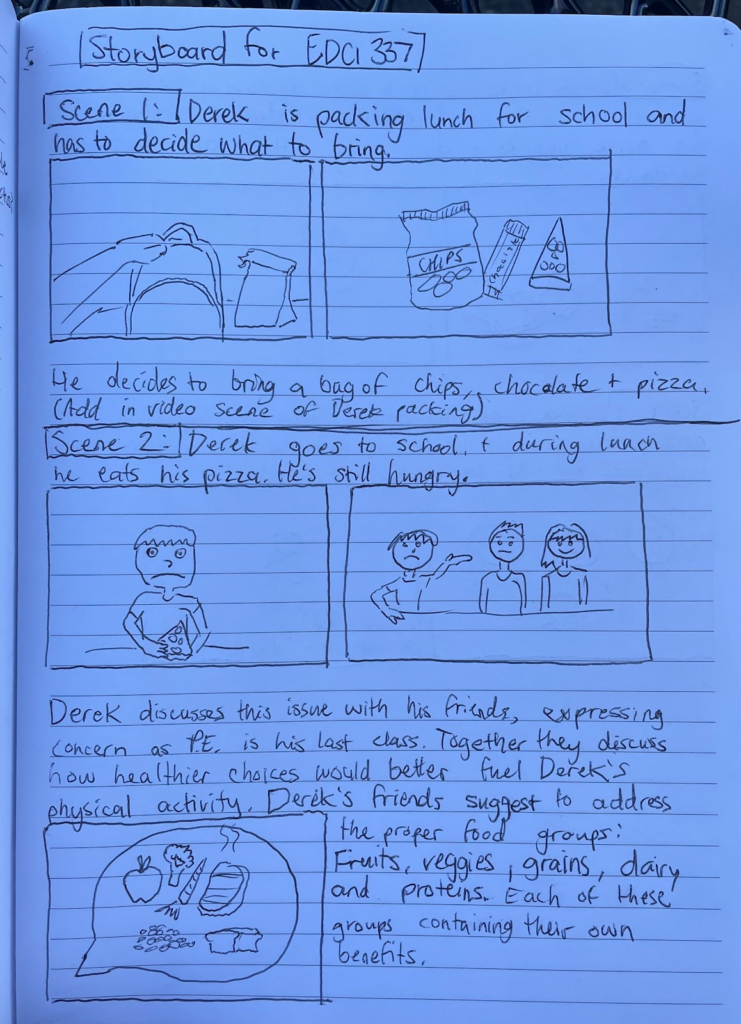 Storyboard for EDCI 337
Scene 1: Derek is packing lunch for school and
has to decide what to bring.
CHIPS
He decides to bring a bag of chips, chocolate + pizza.
(Add in video scene of Derek packing)
Scene 2: Derek goes to school, + during lunch
he eats his pizza. He's still hungry.
Derek discusses this issue with his friends, expressing
concern as P.E. is his last class. Together they discuss
how healthier choices would better fuel Derek's
physical activity. Derek's friends suggest to address
the proper food groups:
Fruits, veggies, grains, dairy
and proteins. Each of these
groups containing their own
benefits.